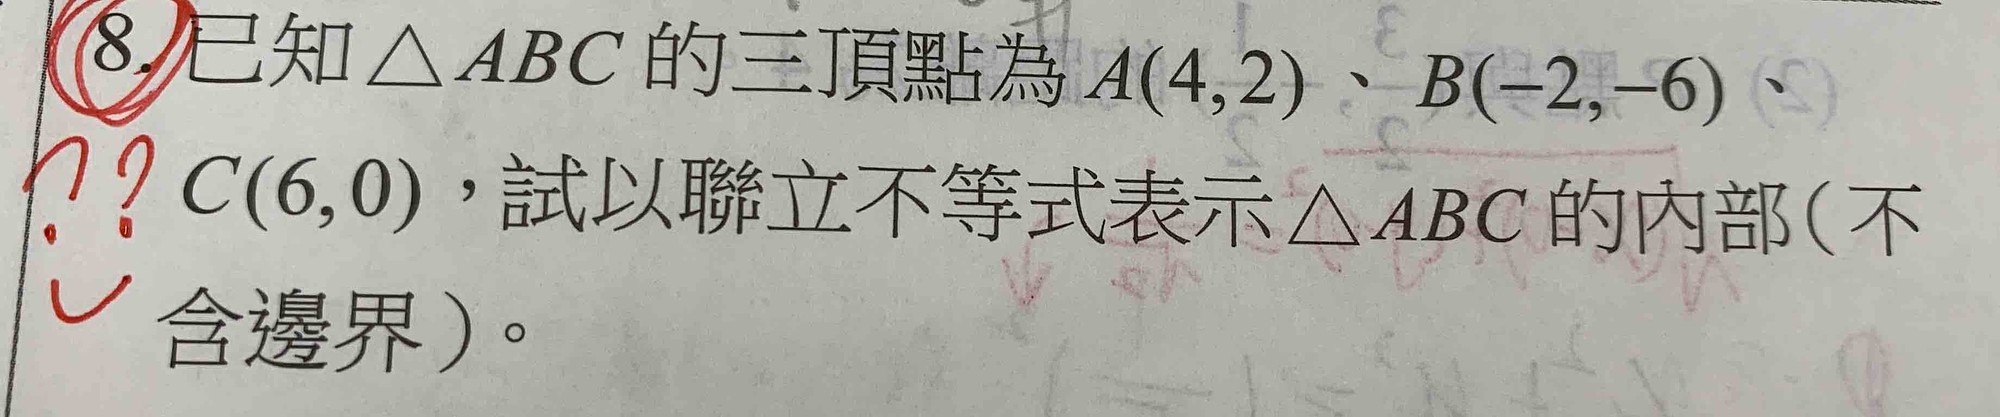 8. 已知△ABC 的三頂點為 A(4,2)、B(−2,−6)、
?? C(6,0),試以聯立不等式表示△ABC 的內部(不
含邊界)。